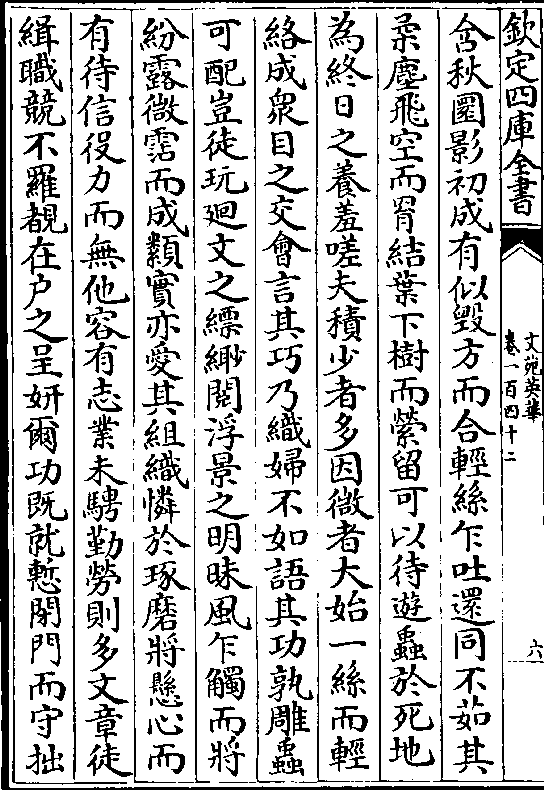 欽定四庫全書
文苑英華
卷一百四十二
六
含秋圜影初成有似毁方而合輕絲乍吐還同不茹其
柔塵飛空而罥結葉下樹而縈留可以待遊蟲於死地
為終日之養羞嗟夫積少者多因微者大始一絲而輕
絡成衆目之交會言其巧乃織婦不如語其功孰雕蟲
可配豈徒玩廻文之縹緲閱浮景之明昧風乍觸而將
紛露微霑而成纇實亦愛其組織憐於琢磨將懸心而
有待信役力而無他容有志業未騁勤勞則多文章徒
緝職競不羅覩在户之呈妍爾功既就慙閉門而守拙